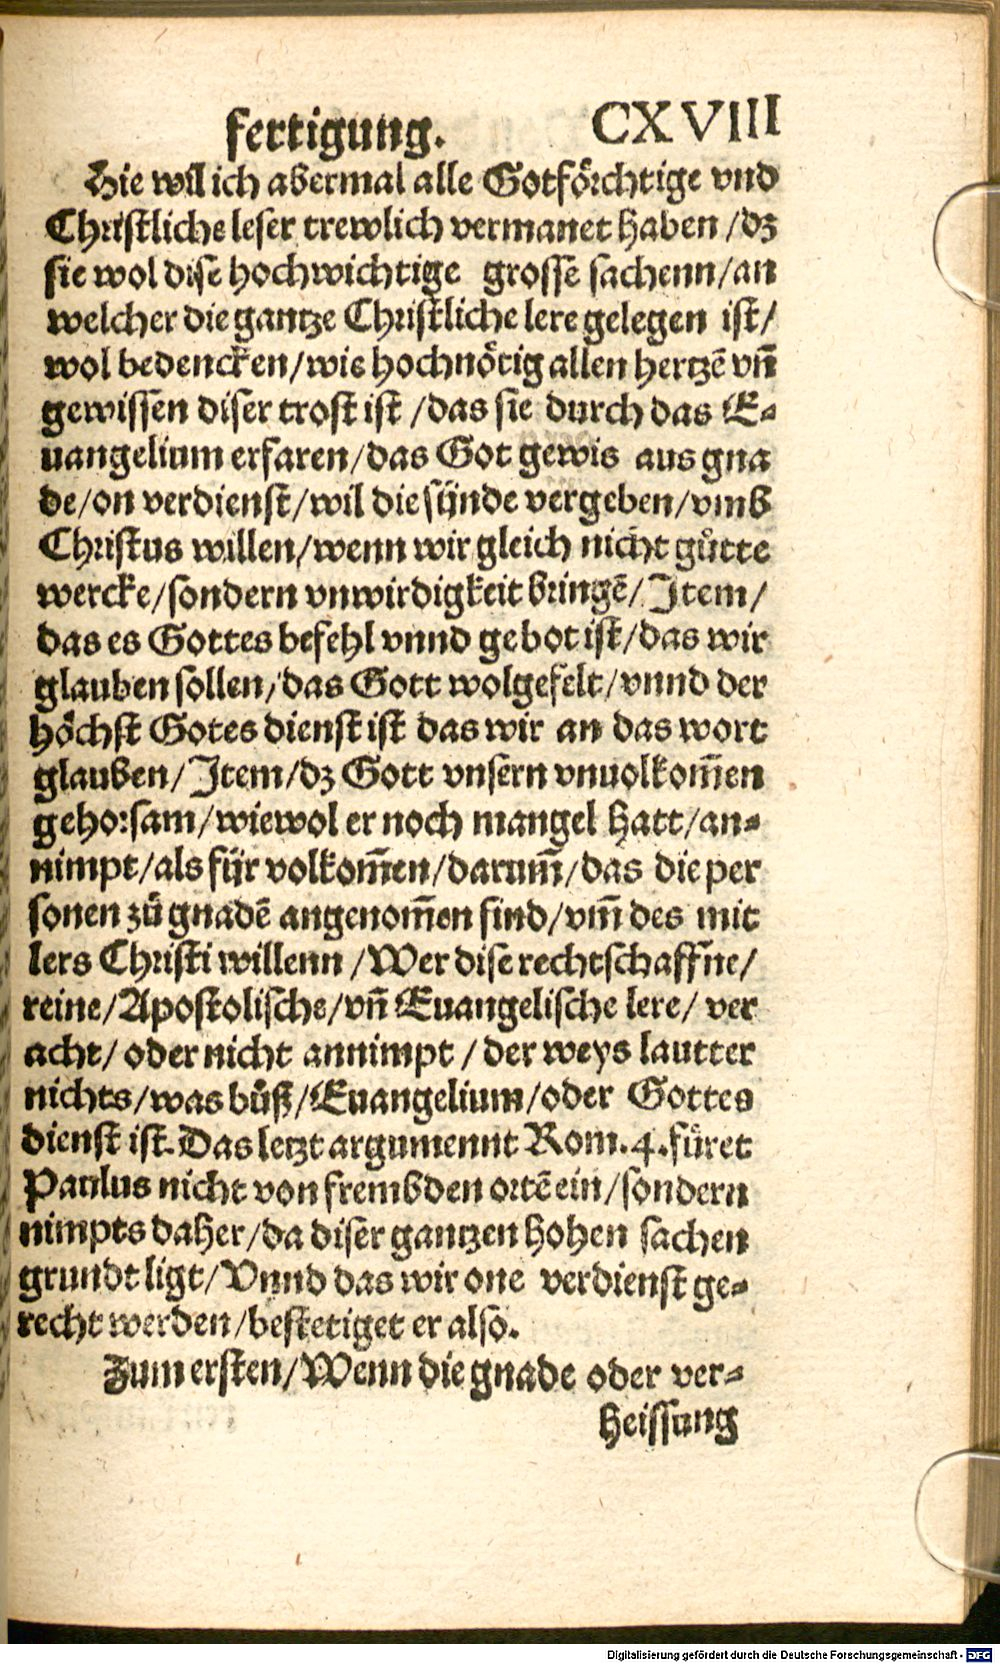 fertigung. CXVIII
Hie wil ich abermal alle Gotförchtige vnd
Christliche leser trewlich vermanet haben / dz
sie wol dise hochwichtige grosse sachenn/an
welcher die gantze Christliche lere gelegen ist/
wol bedencken/wie hochnötig allen hertzē vñ
gewissen diser trost ist /das sie durch das E-
uangelium erfaren/das Got gewis aus gna
de/on verdienst/wil die sünde vergeben/vmb
Christus willen/wenn wir gleich nicht gůtte
wercke/sondern vnwirdigkeit bringē/Item/
das es Gottes befehl vnnd gebot ist/das wir
glauben sollen/das Gott wolgefelt/vnnd der
höchst Gotes dienst ist das wir an das wort
glauben/Item/dz Gott vnsern vnuolkom̃en
gehorsam/wiewol er noch mangel hatt/an-
nimpt/als für volkom̃en/darum̃/das die per
sonen zů gnadē angenom̃en sind/vm̃ des mit
lers Christi willenn /Wer dise rechtschaffñe/
reine/Apostolische/vñ Euangelische lere/ ver
acht/ oder nicht annimpt / der weys lautter
nichts/was bůß/Euangelium/oder Gottes
dienst ist. Das letzt argumennt Rom.4.füret
Paulus nicht von frembden ortē ein/sondern
nimpts daher/da diser gantzen hohen sachen
grundt ligt/Vnnd das wir one verdienst ge-
recht werden/bestetiget er also.
Zum ersten/Wenn die gnade oder ver-
heissung
Digitalisierung gefördert durch die Deutsche Forschungsgemeinschaft - DFG